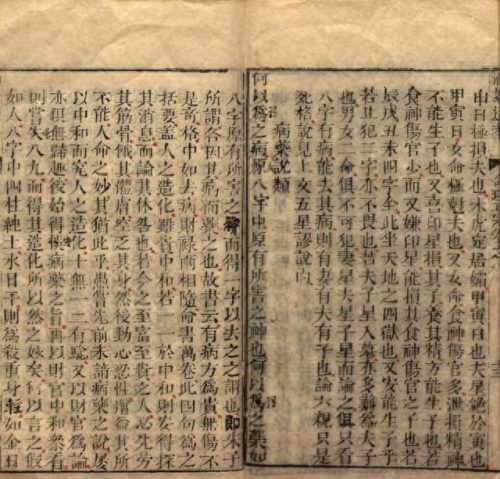 申日極損夫也木虎定居孀甲寅日也夫星絕於寅也
甲寅日女命極尅夫也又女命食神傷官多洩損精神
不能生子也又喜印星損其子養其精方能生子也若
食神傷官少而又嫌印星能損其食神傷官之子也若
辰戌丑未四字全此坐天地之四獄也又安能生子乎
若只犯二字亦不畏也若夫子星入墓亦多尅害夫子
也男女二命俱不可犯妻星夫星子星而論之俱只看
八字有病能去其病則有妻有夫有子也論六親只是
死格說見上文五星謬說內
病藥說類
何以爲之病原八字中原有所害之神也何以爲之藥如
八字原有所害之字而得一字以去之之謂也即朱子
所謂各因其病而藥之也故書云有病方爲貴無傷不
是奇格中如去病財祿兩相隨命書萬卷此四句爲之
括要蓋人之造化雖貴中和若一一於中和則安得探
其消息而論其休咎也若今之至富至貴之人必先勞
其筋骨餓其體膚空乏其身然後動心忍性增益其所
不能人命之妙其猶此乎愚嘗先前未諳病藥之說屢
以中和而究人之造化十無一二有驗又以財官爲論
亦俱無歸趣後始得極病藥之旨再以財官中和參看
則嘗失八九而得其造化所以然之妙矣何以言之假
如人八字中四柱純土水日干則爲殺重身輕如金日